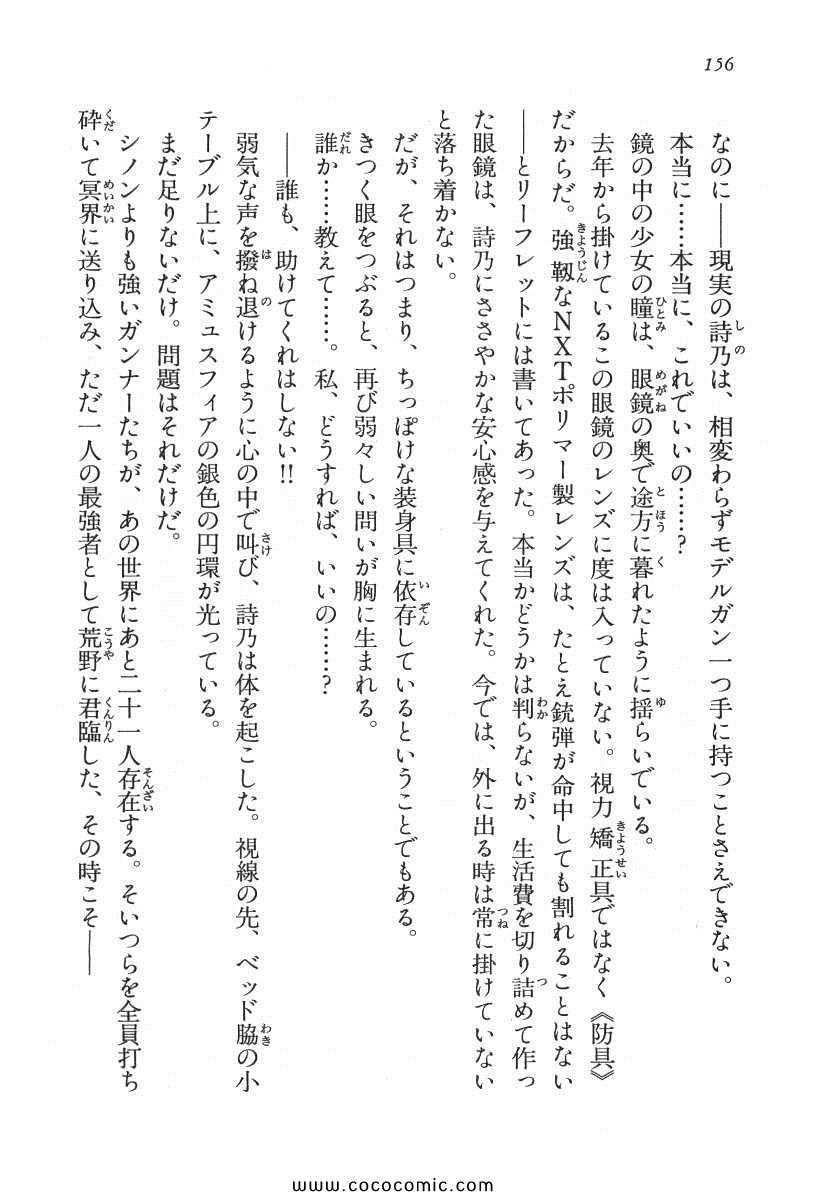 156
なのに――現実の詩乃は、相変わらずモデルガン一つ手に持つことさえできない。
本当に……本当に、これでいいの……？
鏡の中の少女の瞳は、眼鏡の奥で途方に暮れたように揺らいでいる。
去年から掛けているこの眼鏡のレンズに度は入っていない。視力矯正具ではなく《防具》
だからだ。強靱なNXTポリマー製レンズは、たとえ銃弾が命中しても割れることはない
――とリーフレットには書いてあった。本当かどうかは判らないが、生活費を切り詰めて作っ
た眼鏡は、詩乃にささやかな安心感を与えてくれた。今では、外に出る時は常に掛けていない
と落ち着かない。
だが、それはつまり、ちっぽけな装身具に依存しているということでもある。
きつく眼をつぶると、再び弱々しい問いが胸に生まれる。
誰か……教えて……。私、どうすれば、いいの……？
――誰も、助けてくれはしない!!
弱気な声を撥ね退けるように心の中で叫び、詩乃は体を起こした。視線の先、ベッド脇の小
テーブル上に、アミュスフィアの銀色の円環が光っている。
まだ足りないだけ。問題はそれだけだ。
シノンよりも強いガンナーたちが、あの世界にあと二十一人存在する。そいつらを全員打ち
砕いて冥界に送り込み、ただ一人の最強者として荒野に君臨した、その時こそ――
www.cococomic.com/